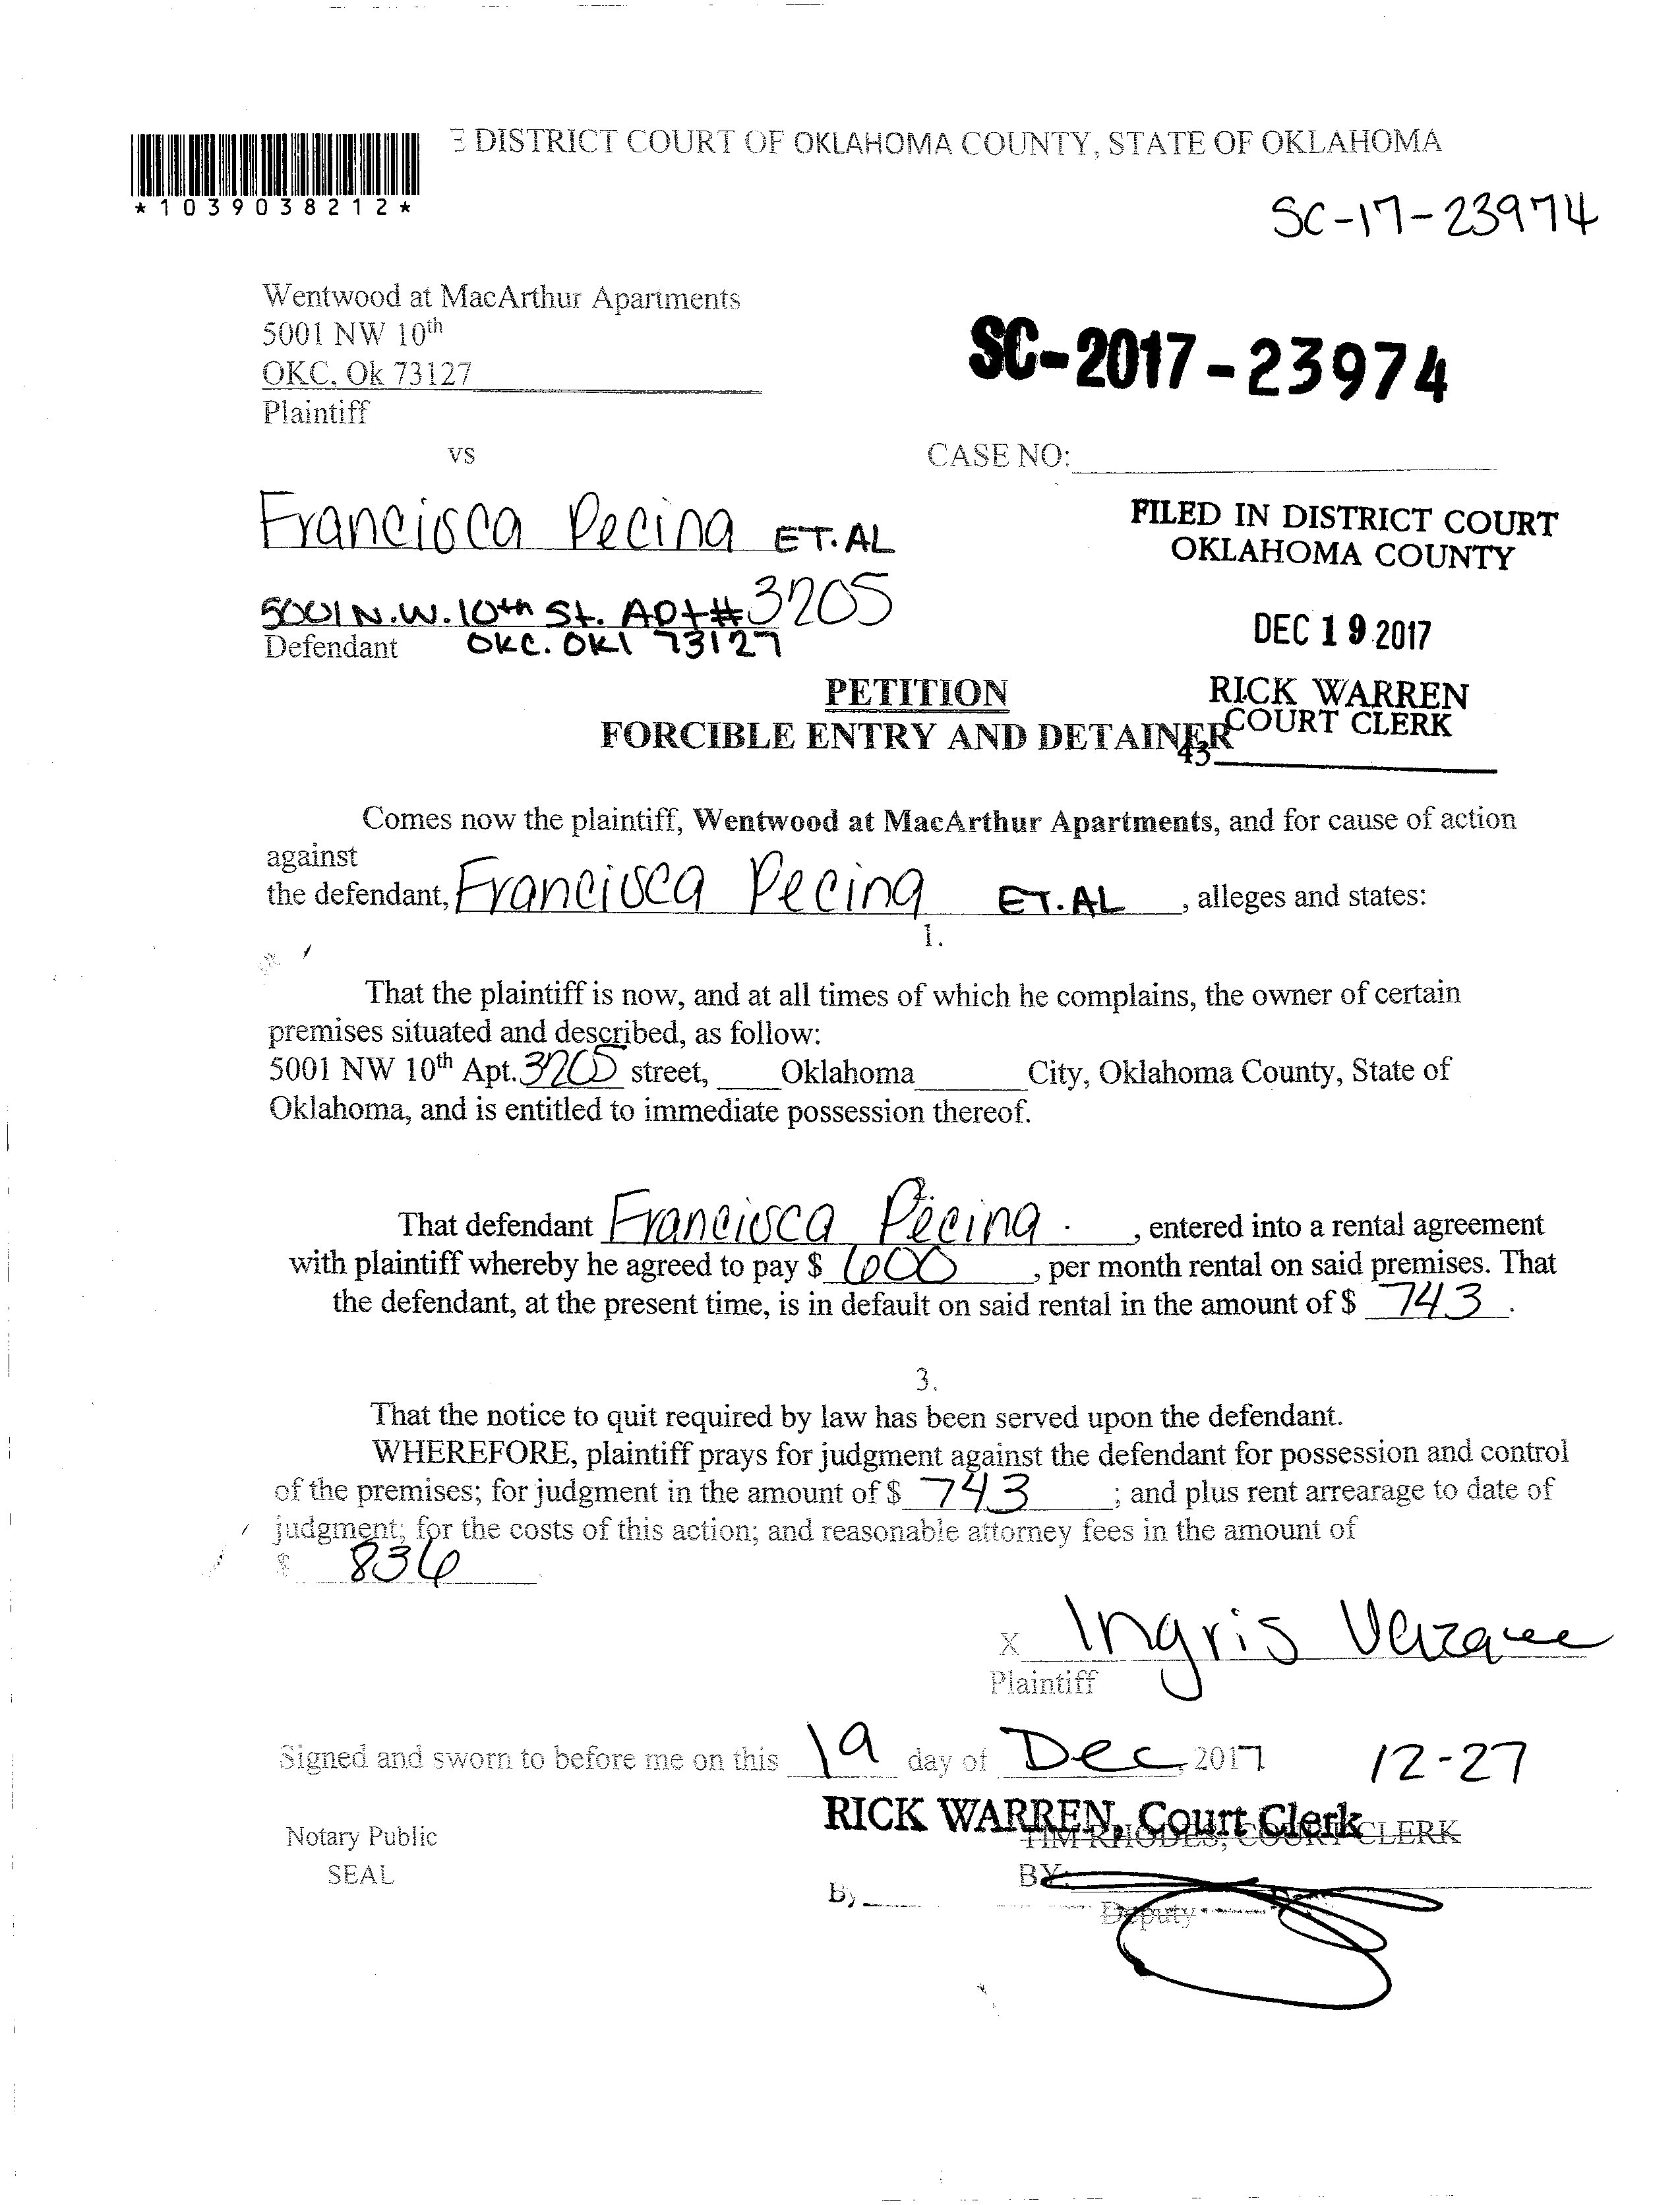 DISTRICT COURT OF OKLAHOMA COUNTY, STATE OF OKLAHOMA
*1039038212*
SC-17-23974
Wentwood at MacArthur Apartments
5001 NW 10th
OKC, Ok 73127
SC-2017-23974
Plaintiff
vs
CASE NO:
Francisca Pecina ET.AL
FILED IN DISTRICT COURT
OKLAHOMA COUNTY
5001 N.W. 10th St. Apt# 3205
Defendant OKC. OKl 73127
DEC 19 2017
PETITION
RICK WARREN
COURT CLERK
FORCIBLE ENTRY AND DETAINER
43
Comes now the plaintiff, Wentwood at MacArthur Apartments, and for cause of action
against
the defendant, Francisca Pecina ET.AL , alleges and states:
1.
That the plaintiff is now, and at all times of which he complains, the owner of certain
premises situated and described, as follow:
5001 NW 10th Apt. 3205 street, Oklahoma City, Oklahoma County, State of
Oklahoma, and is entitled to immediate possession thereof.
That defendant Francisca Pecina , entered into a rental agreement
with plaintiff whereby he agreed to pay $ 600 , per month rental on said premises. That
the defendant, at the present time, is in default on said rental in the amount of $ 743 .
3.
That the notice to quit required by law has been served upon the defendant.
WHEREFORE, plaintiff prays for judgment against the defendant for possession and control
of the premises; for judgment in the amount of $ 743 ; and plus rent arrearage to date of
judgment; for the costs of this action; and reasonable attorney fees in the amount of
$ 836
X Ingris Vazquez
Plaintiff
Signed and sworn to before me on this 19 day of Dec, 2017 12-27
RICK WARREN, Court Clerk
TIM RHODES, COURT CLERK
Notary Public
SEAL
BY:
By
Deputy